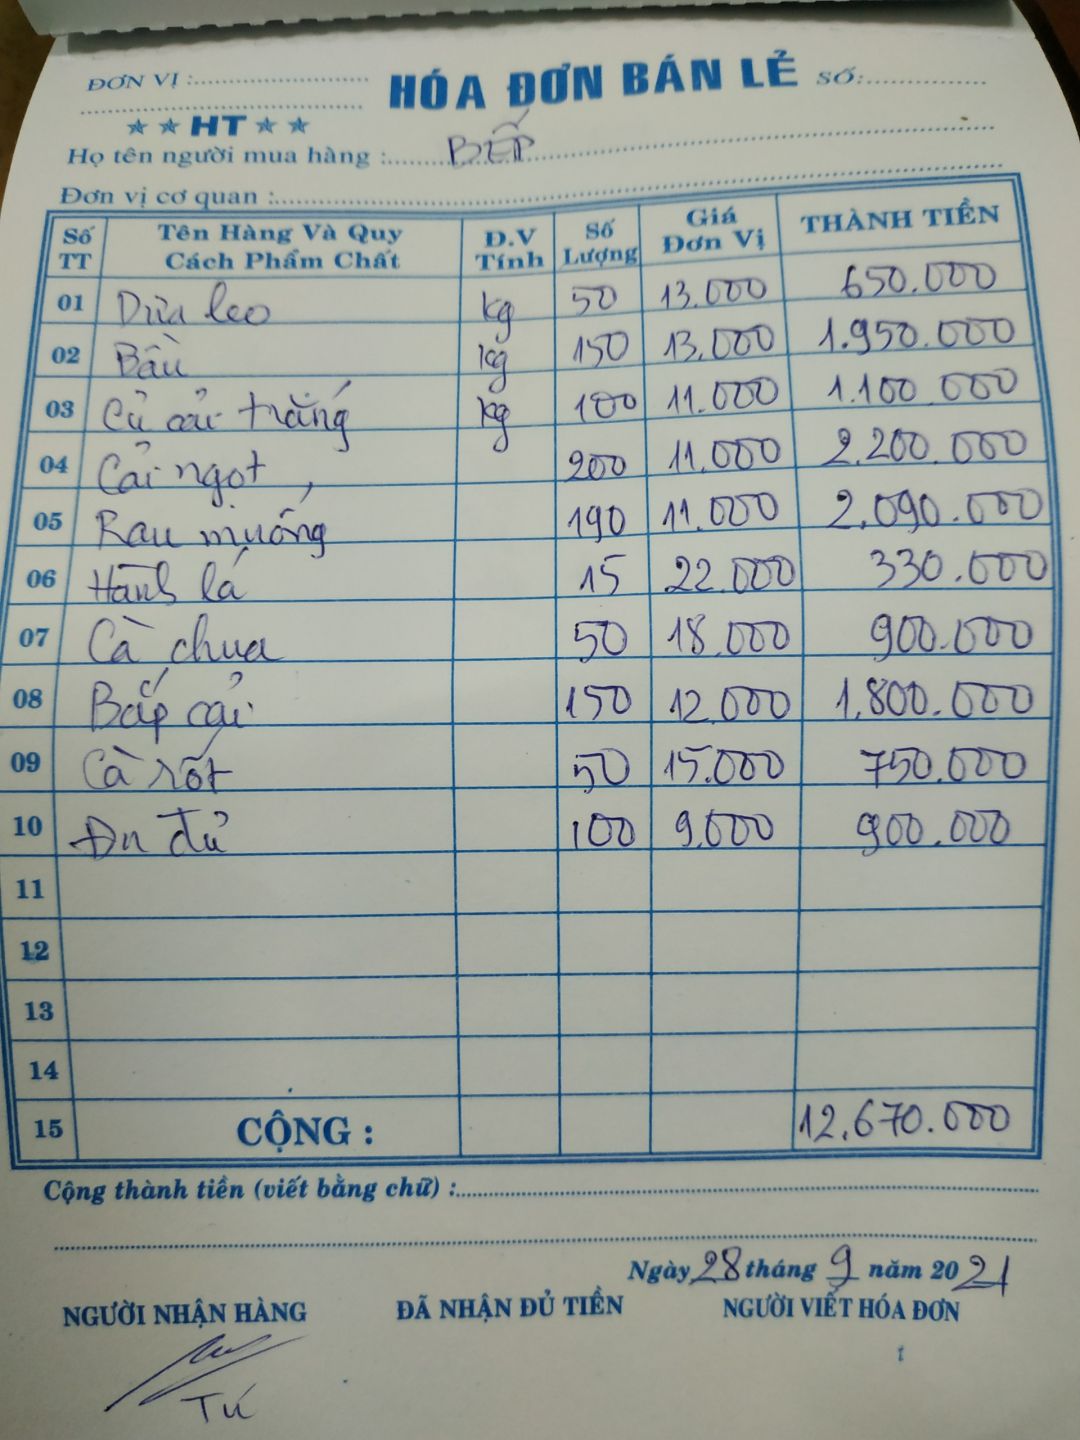 ĐƠN VỊ :........................ HÓA ĐƠN BÁN LẺ SỐ:................
★ ★ HT ★ ★
Họ tên người mua hàng : BẾP
Đơn vị cơ quan :
Số TT Tên Hàng Và Quy Cách Phẩm Chất Đ.V Tính Số Lượng Giá Đơn Vị THÀNH TIỀN
01 Dưa leo kg 50 13.000 650.000
02 Bầu kg 150 13.000 1.950.000
03 Củ cải trắng kg 100 11.000 1.100.000
04 Cải ngọt 200 11.000 2.200.000
05 Rau muống 190 11.000 2.090.000
06 Hành lá 15 22.000 330.000
07 Cà chua 50 18.000 900.000
08 Bắp cải 150 12.000 1.800.000
09 Cà rốt 50 15.000 750.000
10 Đu đủ 100 9.000 900.000
11
12
13
14
15 CỘNG : 12.670.000
Cộng thành tiền (viết bằng chữ) :
Ngày 28 tháng 9 năm 2021
NGƯỜI NHẬN HÀNG ĐÃ NHẬN ĐỦ TIỀN NGƯỜI VIẾT HÓA ĐƠN
Tú